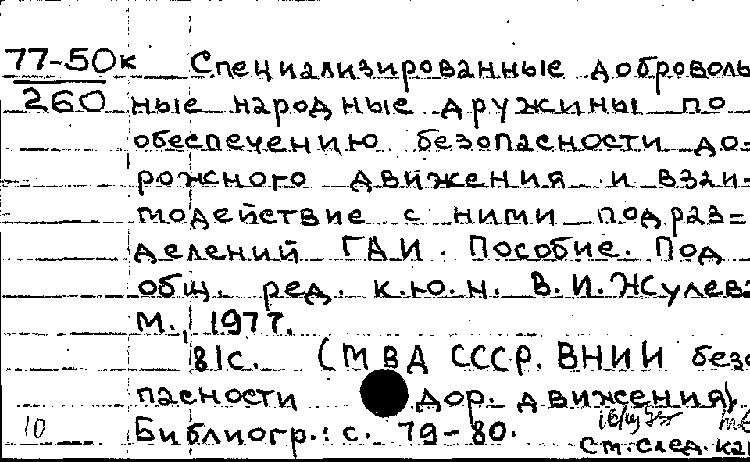 77-50к Специализированные доброволь
260 ные народные дружины по
обеспечению безопасности до=
рожного движения и взаи-
модействие с ними подраз=
делений ГАИ. Пособие. Под
общ. ред. к.ю.н. В.И. Жулева
М., 1977.
81с. (МВД СССР. ВНИИ безо
пасности дор. движения).
10 Библиогр.: с. 79-80.
см. след. кар